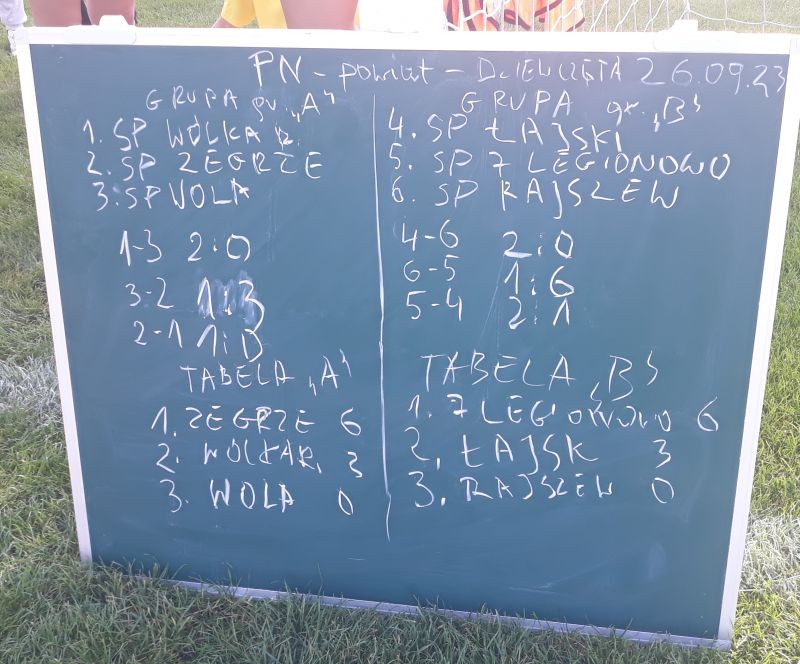 PN - powiat - DZIEWCZĘTA 26.09.23
GRUPA gr. „A"
1. SP WÓLKA R.
2. SP ZEGRZE
3. SP WOLA
1-3 2:0
3-2 1:3
2-1 1:0
TABELA „A"
1. ZEGRZE 6
2. WÓLKA R. 3
3. WOLA 0
GRUPA gr. „B"
4. SP ŁAJSKI
5. SP 7 LEGIONOWO
6. SP RAJSZEW
4-6 2:0
6-5 1:6
5-4 2:1
TABELA „B"
1. 7 LEGIONOWO 6
2. ŁAJSK 3
3. RAJSZEW 0